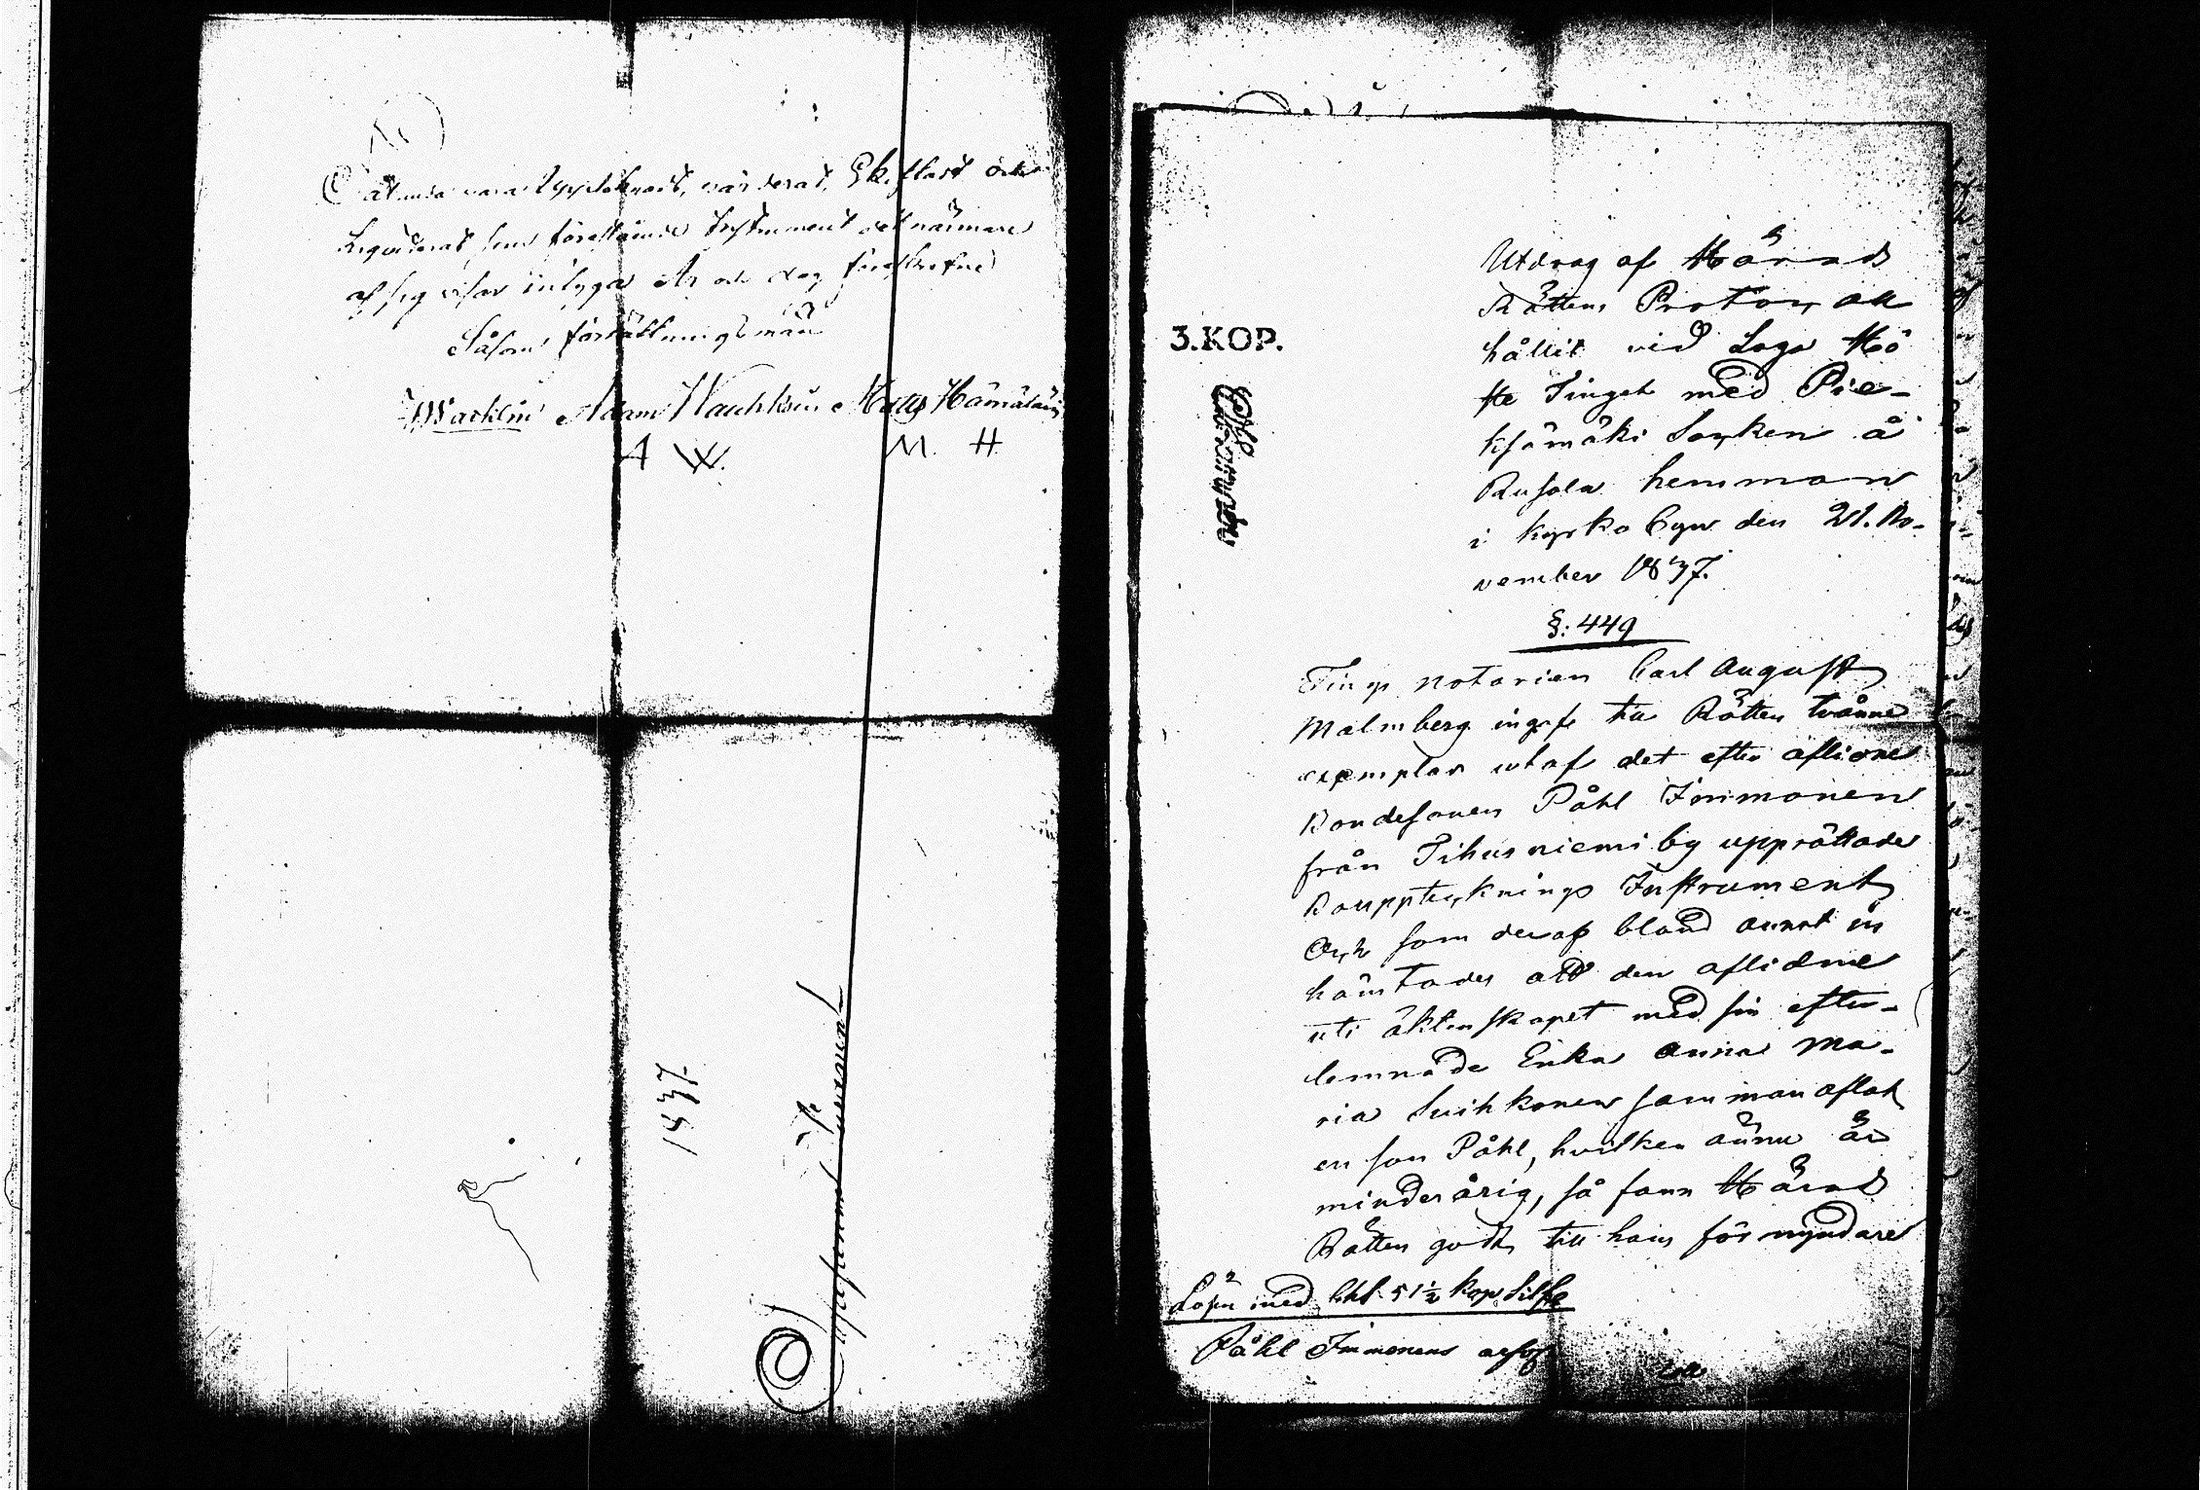 Såluda vara Upptecknat, värderat, Skiftadt och
Liqviderat som förestående Instrument det närmare
af sig visar intyga År och dag föreskrefne
Såsom förrättningsmän
Wacklin Adam Hauhkain Matts Hämäläin
A W. M. H.
1837.
Påhl Immonens
3.KOP.
Utdrag af Härads
Rättens Protocoll
hållit vid Laga Hö
ste Tinget med Pie-
ksämäki Socken å
Rusola hemman
i kyrko byn den 21. No-
vember 1837.
§: 449
Tings notarien Carl August
Malmberg ingaf till Rätten tvänne
exemplar utaf det efter aflidne
Bondesonen Påhl Immonen
från Tihusniemi by upprättade
Bouppteknings Instrument
Och som deraf bland annat in
hämtades att den aflidne
uti äktenskapet med sin efter-
lemnade Enka Anna Ma-
ria Suihkonen samman aflat
en son Påhl, hvilken ännu är
minderårig, så fann Härads
Rätten godt till hans förmyndare
Lösen med 51½ kop Silfr
Påhl Immonens